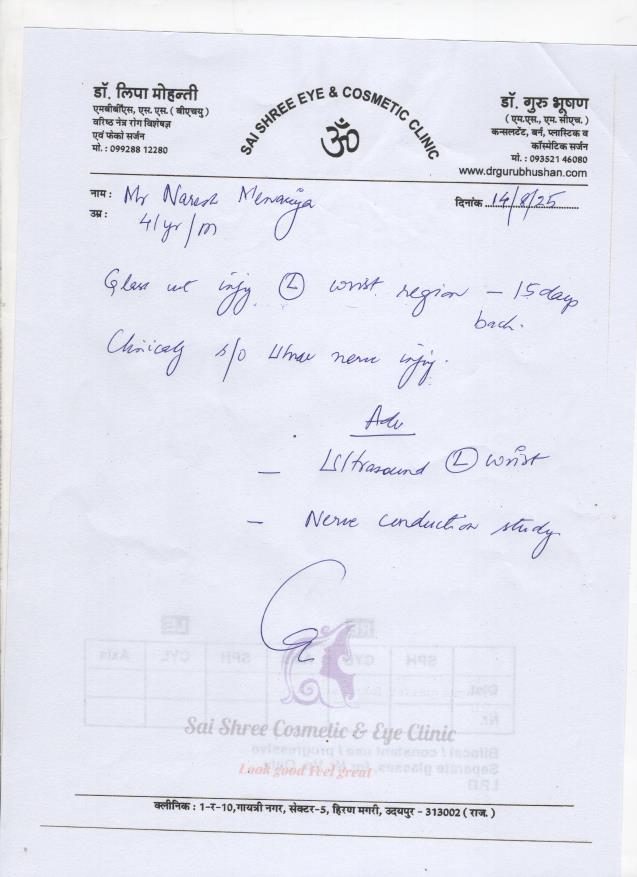 डॉ. लिपा मोहन्ती
एमबीबीएस, एस. एस. ( बीएचयु )
वरिष्ठ नेत्र रोग विशेषज्ञ
एवं फेको सर्जन
मो. : 099288 12280
SAI SHREE EYE & COSMETIC CLINIC
ॐ
डॉ. गुरु भूषण
( एम.एस., एम. सीएच. )
कन्सलटेंट, बर्न, प्लास्टिक व
कॉस्मेटिक सर्जन
मो. : 093521 46080
www.drgurubhushan.com
नाम : Mr Naresh Menariya
दिनांक 14/8/25
उम्र : 41yr/m
Glass cut injy (L) wrist region - 15 days
back.
Clinically s/o Ulnar nerve injy.
Adv
- Ultrasound (L) wrist
- Nerve conduction study
RE
LE
SPH CYL Axis SPH CYL Axis
Dist.
Nr.
Sai Shree Cosmetic & Eye Clinic
Look good Feel great
Bifocal / constant use / progressive
Separate glasses, for
I.P.D
क्लीनिक : 1-र-10,गायत्री नगर, सेक्टर-5, हिरण मगरी, उदयपुर - 313002 ( राज. )